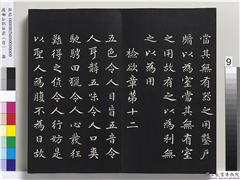 當其無有器之用鑿戶
牖為室當其無有室
之用故有之以為利無
之以為用
檢欲章第十二
五色令人目盲五音令
人耳聾五味令人口爽
馳騁田獵令人心發狂
難得之貨令人行妨是
以聖人為腹不為目故
9